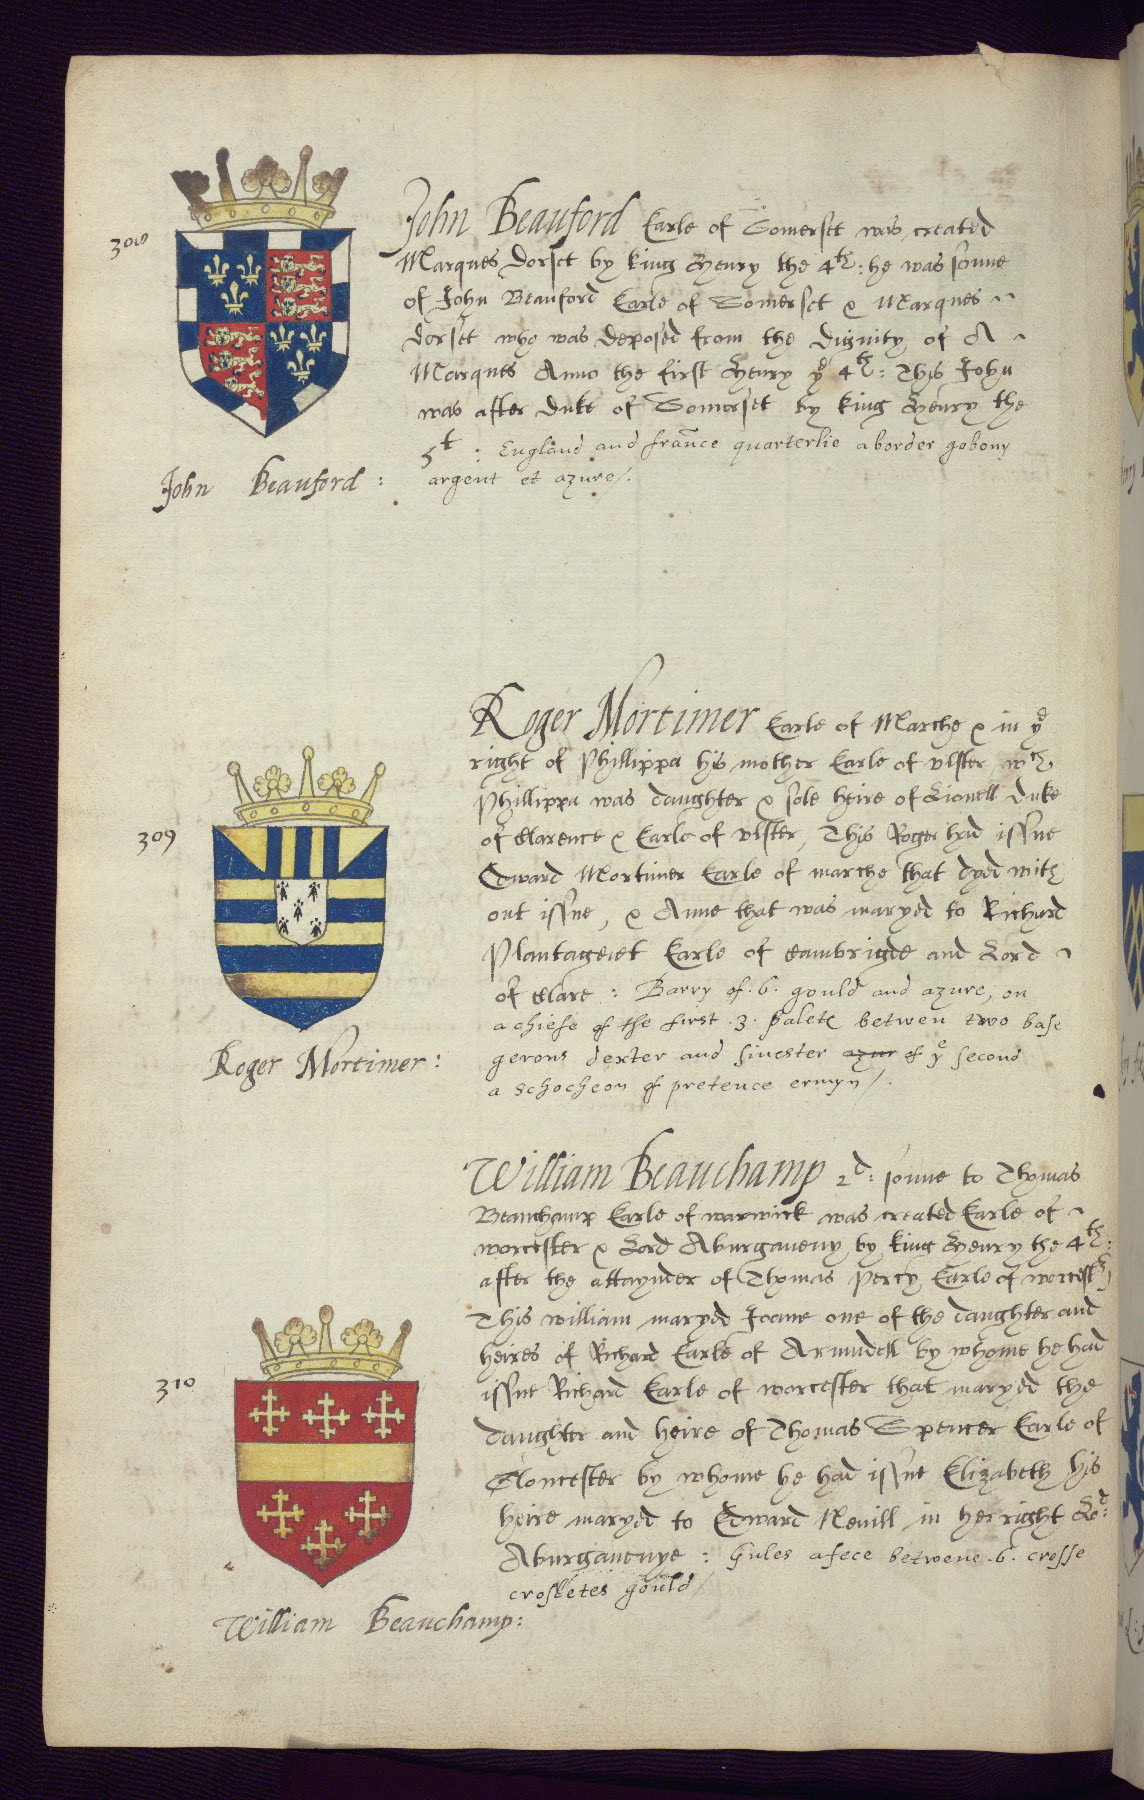 308
John Beauford Earle of Somerset was created
Marques Dorset by king Henry the 4th: he was sonne
of John Beauford Earle of Somerset & Marques
Dorset who was deposed from the dignity of A
Marques Anno the first Henry ye 4th: This John
was after Duke of Somerset by king Henry the
5t: England and france quarterlie a border gobony
argent et azure/.
John Beauford:
309
Roger Mortimer Earle of Marche & in ye
right of Phillippa his mother Earle of Ulster, wch
Phillippa was daughter & sole heire of Lionell Duke
of Clarence & Earle of Ulster, This Roger had issue
Edward Mortimer Earle of marche that dyed with
out issue, & Anne that was maryed to Richard
Plantagenet Earle of Cambrigde and Lord
of Clare: Barry of .6. gould and azure, on
a chiefe of the first .3. palets betwen two base
gerons dexter and sinester azur of ye second
a schocheon of pretence ermyn/.
Roger Mortimer:
310
William Beauchamp 2d: sonne to Thomas
Beauchamp Earle of warwick was created Earle of
worcester & Lord Aburgaueny by king Henry the 4th:
after the attaynder of Thomas Percy Earle of worcestr
This william maryed Joane one of the daughter and
heires of Richard Earle of Arundell by whome he had
issue Richard Earle of worcester that maryed the
daughter and heire of Thomas Spencer Earle of
Gloucester by whome he had issue Elizabeth his
heire maryed to Edward Nevill in her right Lo:d
Aburgauenye: Gules a fece betwene .6. crosse
crosletes gould/
William Beauchamp: